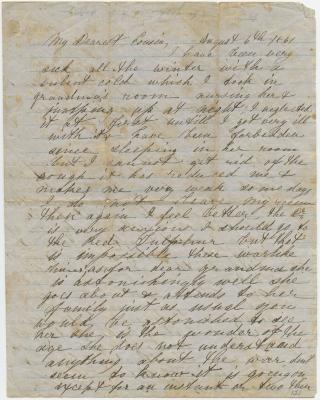 My Dearest Cousin, August 6th 1861
I have been very
sick all the winter with a
violent cold which I took in
grandma's room nursing her &
jumping up at night I neglected
it at first untill I got very ill
with it & have been forbidden
since sleeping in her room
but I cannot get rid of the
cough it has reduced me &
makes me very weak some days
I do not leave my room
then again I feel better, the Dr
is very anxious I should go to
the Red Sulphur but that
is impossible these warlike
times, as for dear grandma she
is astonishingly well she
goes about & attends to her
family just as usual you
would be astonished to see
her she is the wonder of the
age she does not understand
anything about the war dont
seem to know it is going on
except for an instant or two then